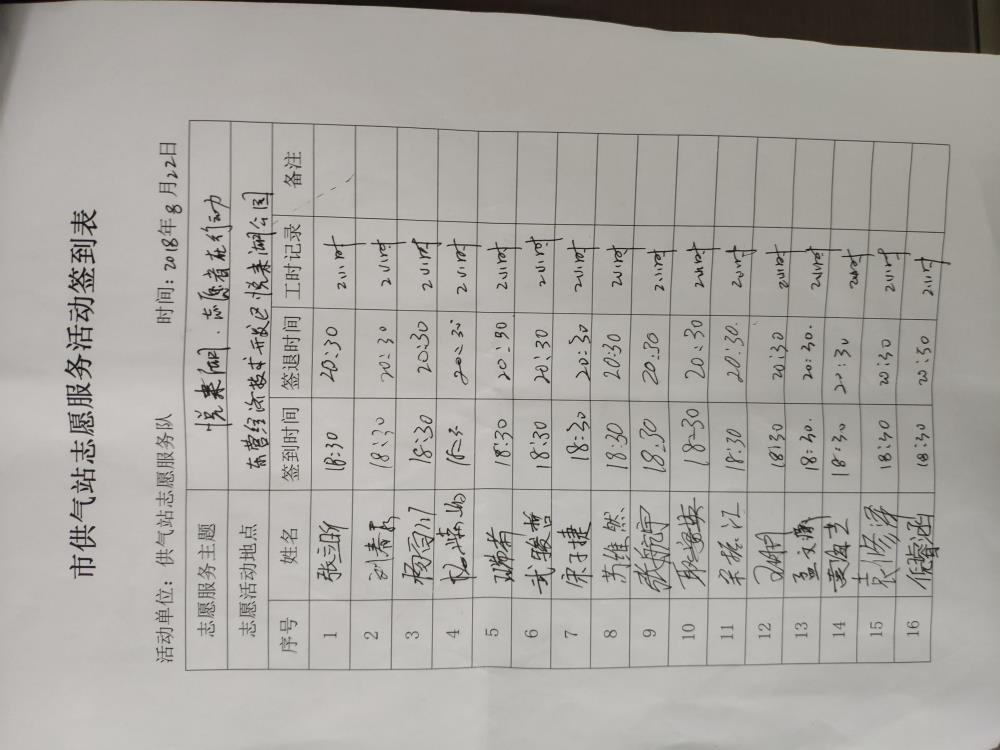 市供气站志愿服务活动签到表
活动单位：供气站志愿服务队 时间：2018年8月22日
志愿服务主题 悦来湖．志愿者在行动
志愿活动地点 东营经济技术开发区悦来湖公园
序号 姓名 签到时间 签退时间 工时记录 备注
1 18:30 20:30 2小时
2 刘春 18:30 20:30 2小时
3 杨百川 18:30 20:30 2小时
4 20:30 2小时
5 18:30 20:30 2小时
6 武骏哲 18:30 20:30 2小时
7 宋子捷 18:30 20:30 2小时
8 苏维然 18:30 20:30 2小时
9 张航宇 18:30 20:30 2小时
10 18:30 20:30 2小时
11 18:30 20:30. 2小时
12 18:30 20:30 2小时
13 孟文 18:30. 20:30. 2小时
14 黄 18:30 20:30 2小时
15 袁修泽 18:30 20:30 2小时
16 侯睿涵 18:30 20:30 2小时